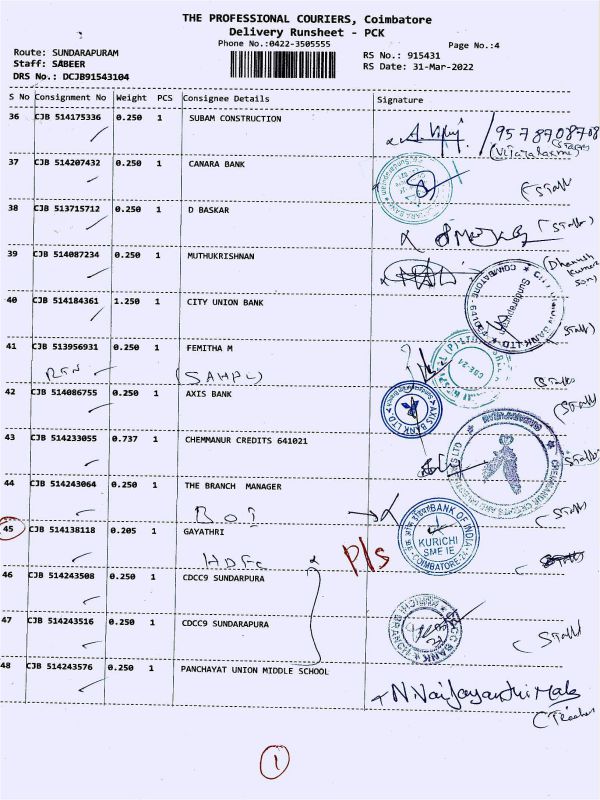 THE PROFESSIONAL COURIERS, Coimbatore
Delivery Runsheet - PCK
Phone No.:0422-3505555
Page No.:4
Route: SUNDARAPURAM
Staff: SABEER
DRS No.: DCJB91543104
RS No.: 915431
RS Date: 31-Mar-2022
S No Consignment No Weight PCS Consignee Details Signature
36 CJB 514175336 0.250 1 SUBAM CONSTRUCTION
9578708708
37 CJB 514207432 0.250 1 CANARA BANK
(Staff)
38 CJB 513715712 0.250 1 D BASKAR
(Staff)
39 CJB 514087234 0.250 1 MUTHUKRISHNAN
(Dhanush Kumar Son)
40 CJB 514184361 1.250 1 CITY UNION BANK
COIMBATORE - 641
Sundarapuram
Staff)
41 CJB 513956931 0.250 1 FEMITHA M
RTN (SAHPL)
42 CJB 514086755 0.250 1 AXIS BANK
AXIS BANK LTD
(Staff)
43 CJB 514233055 0.737 1 CHEMMANUR CREDITS 641021
Staff)
44 CJB 514243064 0.250 1 THE BRANCH MANAGER
BOI
(Staff)
45 CJB 514138118 0.205 1 GAYATHRI
HDFC
P/s
BANK OF INDIA
KURICHI
SME IE
COIMBATORE
46 CJB 514243508 0.250 1 CDCC9 SUNDARPURA
47 CJB 514243516 0.250 1 CDCC9 SUNDARAPURA
(Staff)
48 CJB 514243576 0.250 1 PANCHAYAT UNION MIDDLE SCHOOL
(Teacher
1